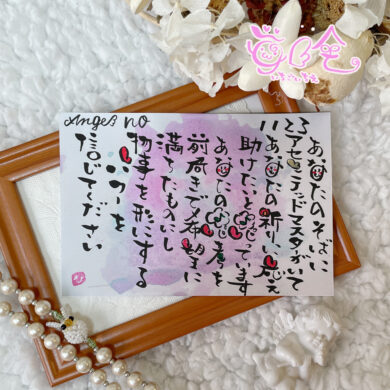 Angel no
あなたのそばに
23 アセンデッドマスターがいて
11 あなたの祈りに応え
助けたいと思っています
あなたの
前向きで希望に
満ちたものにし
物事を形にする
パワーを
信じてください